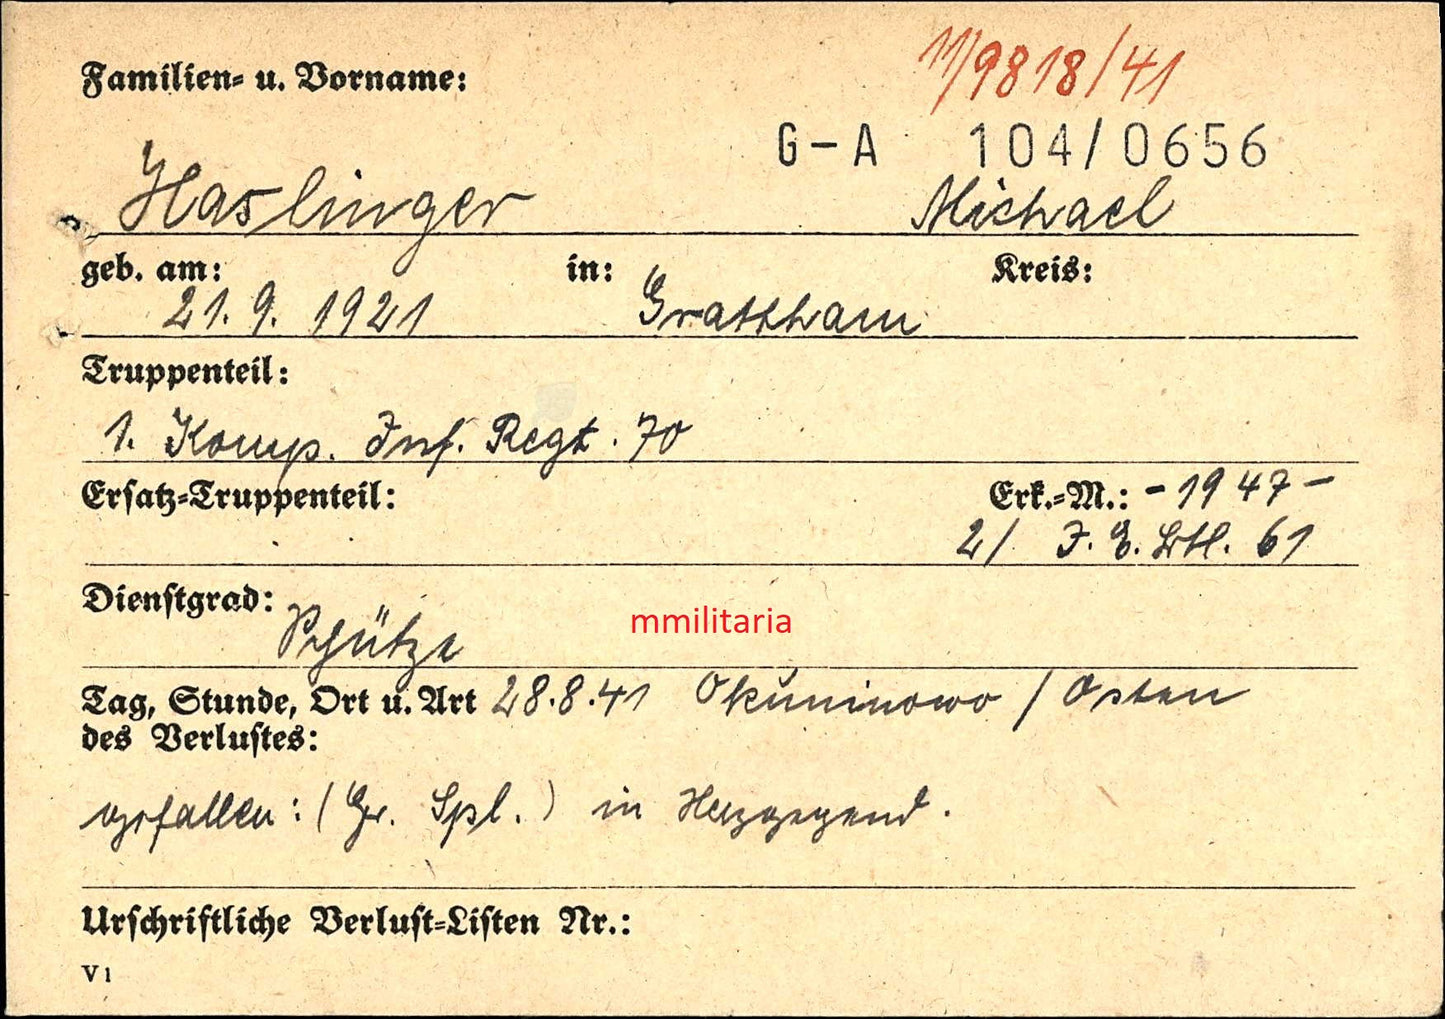 11/9818/41
Familien- u. Vorname:
G-A 104/0656
Haslinger Michael
geb. am: in: Kreis:
21. 9. 1921 Grattham
Truppenteil:
1. Komp. Inf. Regt. 70
Ersatz-Truppenteil: Erk.-M.: - 1947 -
2/ J. E. Btl. 61
Dienstgrad:
Schütze
mmilitaria
Tag, Stunde, Ort u. Art 28.8.41 Okuninowo / Osten
des Verlustes:
gefallen: (Gr. Spl.) in Herzgegend.
Urschriftliche Verlust-Listen Nr.:
V1